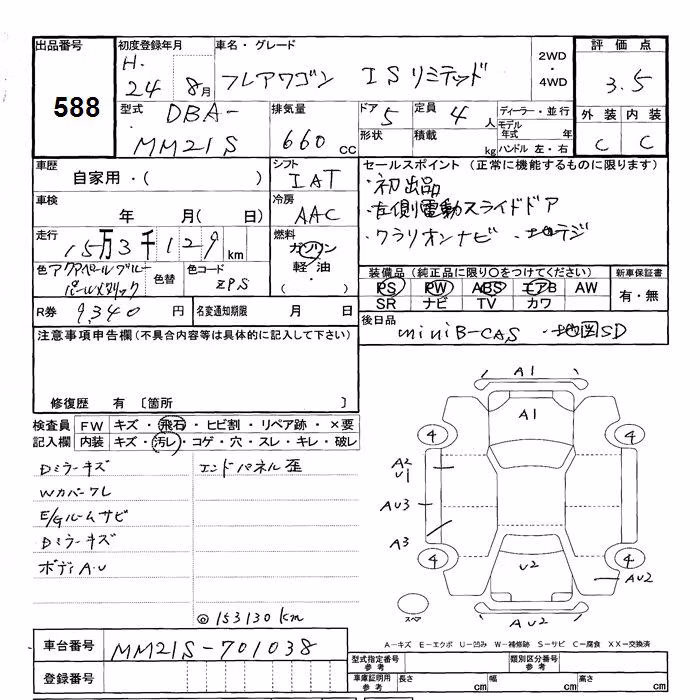 出品番号 初度登録年月 車名・グレード 評価点
588
H. 24 8月 フレアワゴン ISリミテッド 2WD ・ 4WD 3.5
型式 排気量 ドア 定員 ディーラー・並行 外装 内装
DBA- MM21S 660 cc 5 4人
形状 積載 kg モデル年式 年 ハンドル 左・右 C C
車歴 シフト セールスポイント (正常に機能するものに限ります)
自家用・( ) IAT ・初出品
車検 冷房 ・左側電動スライドドア
年 月( 日) AAC ・クラリオンナビ ・地デジ
走行 燃料
15万3千129km ガソリン 軽油・ ( )
装備品 (純正品に限り○をつけてください) 新車保証書
PS PW ABS エアB AW 有・無
SR ナビ TV カワ
色 アクアペールブルーパールメタリック 色替 色コード ZPS
R券 9,340 円 名変通知期限 月 日
後日品 miniB-CAS ・地図SD
注意事項申告欄 (不具合内容等は具体的に記入して下さい)
修復歴 有 〔箇所 〕
検査員記入欄 FW キズ・飛石・ヒビ割・リペア跡・×要
内装 キズ・汚レ・コゲ・穴・スレ・キレ・破レ
Dミラーキズ エンドパネル歪
Wカバーワレ
E/Gルームサビ
Dミラーキズ
ボディA・U
◎153130km
A1
A1
4 4
A2
U1
AU3
A3
4 4
U2
AU2
スペア
AU2
A-キズ E-エクボ U-凹み W-補修跡 S-サビ C-腐食 XX-交換済
車台番号 MM21S-701038
型式指定番号 参考 類別区分番号 参考
登録番号
車庫証明用 参考 長さ cm 幅 cm 高さ cm